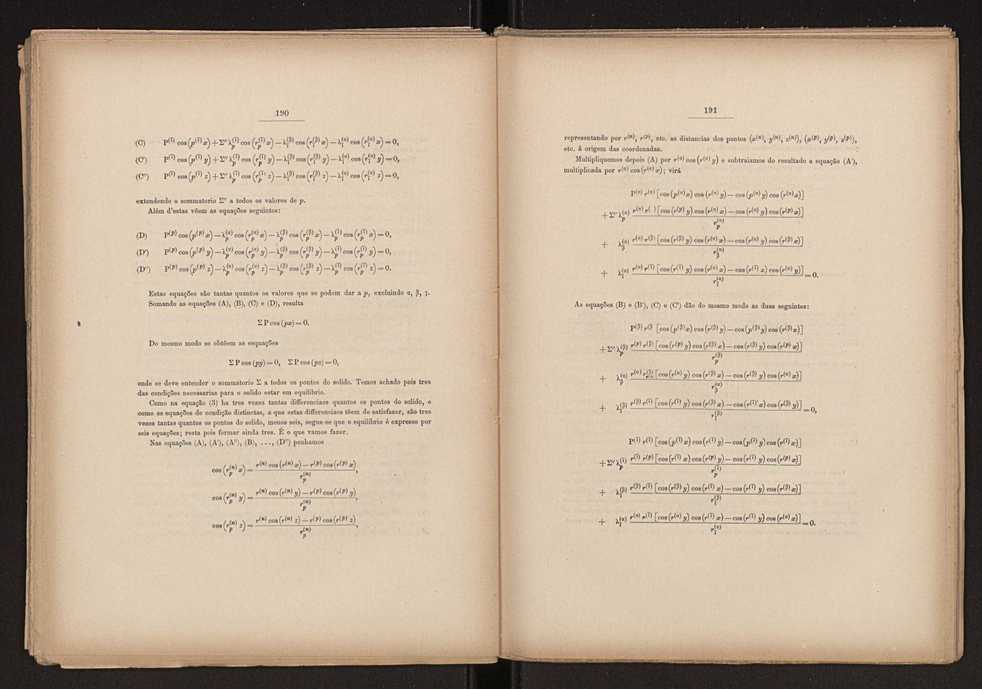 190
(C) P^(γ) cos (p^(γ) x) + Σ'' λ_p^(γ) cos (r_p^(γ) x) − λ_γ^(β) cos (r_γ^(β) x) − λ_γ^(α) cos (r_γ^(α) x) = 0,
(C') P^(γ) cos (p^(γ) y) + Σ'' λ_p^(γ) cos (r_p^(γ) y) − λ_γ^(β) cos (r_γ^(β) y) − λ_γ^(α) cos (r_γ^(α) y) = 0,
(C'') P^(γ) cos (p^(γ) z) + Σ'' λ_p^(γ) cos (r_p^(γ) z) − λ_γ^(β) cos (r_γ^(β) z) − λ_γ^(α) cos (r_γ^(α) z) = 0,
extendendo o sommatorio Σ'' a todos os valores de p.
Além d'estas vêem as equações seguintes:
(D) P^(p) cos (p^(p) x) − λ_p^(α) cos (r_p^(α) x) − λ_p^(β) cos (r_p^(β) x) − λ_p^(γ) cos (r_p^(γ) x) = 0,
(D') P^(p) cos (p^(p) y) − λ_p^(α) cos (r_p^(α) y) − λ_p^(β) cos (r_p^(β) y) − λ_p^(γ) cos (r_p^(γ) y) = 0,
(D'') P^(p) cos (p^(p) z) − λ_p^(α) cos (r_p^(α) z) − λ_p^(β) cos (r_p^(β) z) − λ_p^(γ) cos (r_p^(γ) z) = 0.
Estas equações são tantas quantos os valores que se podem dar a p, excluindo α, β, γ.
Somando as equações (A), (B), (C) e (D), resulta
Σ P cos (px) = 0.
Do mesmo modo se obtêem as esquações
Σ P cos (py) = 0, Σ P cos (pz) = 0,
onde se deve entender o sommatorio Σ a todos os pontos do solido. Temos achado pois tres
das condições necessarias para o solido estar em equilibrio.
Como na equação (3) ha tres vezes tantas differenciaes quantos os pontos do solido, e
como as equações de condição distinctas, a que estas differenciaes têem de satisfazer, são tres
vezes tantas quantos os pontos do solido, menos seis, segue-se que o equilibrio é expresso por
seis equações; resta pois formar ainda tres. É o que vamos fazer.
Nas equações (A), (A'), (A''), (B), ..., (D'') ponhamos
cos (r_p^(n) x) = r^(n) cos (r^(n) x) − r^(p) cos (r^(p) x) / r_p^(n),
cos (r_p^(n) y) = r^(n) cos (r^(n) y) − r^(p) cos (r^(p) y) / r_p^(n),
cos (r_p^(n) z) = r^(n) cos (r^(n) z) − r^(p) cos (r^(p) z) / r_p^(n),
191
representando por r^(n), r^(p), etc. as distancias dos pontos (x^(n), y^(n), z^(n)), (x^(p), y^(p), z^(p)),
etc. á origem das coordenadas.
Multipliquemos depois (A) por r^(α) cos (r^(α) y) e subtraiamos do resultado a equação (A'),
multiplicada por r^(α) cos (r^(α) x); virá
P^(α) r^(α) [cos (p^(α) x) cos (r^(α) y) − cos (p^(α) y) cos (r^(α) x)]
+ Σ'' λ_p^(α) r^(α) r^( ) [cos (r^(p) y) cos (r^(α) x) − cos (r^(α) y) cos (r^(p) x)] / r_p^(α)
+ λ_β^(α) r^(α) r^(β) [cos (r^(β) y) cos (r^(α) x) − cos (r^(α) y) cos (r^(β) x)] / r_β^(α)
+ λ_γ^(α) r^(α) r^(γ) [cos (r^(γ) y) cos (r^(α) x) − cos (r^(γ) x) cos (r^(α) y)] / r_γ^(α) = 0.
As equações (B) e (B'), (C) e (C') dão do mesmo modo as duas seguintes:
P^(β) r^(β) [cos (p^(β) x) cos (r^(β) y) − cos (p^(β) y) cos (r^(β) x)]
+ Σ'' λ_p^(β) r^(p) r^(β) [cos (r^(p) y) cos (r^(β) x) − cos (r^(β) y) cos (r^(p) x)] / r_p^(β)
+ λ_β^(α) r^(α) r^(β) [cos (r^(α) y) cos (r^(β) x) − cos (r^(β) y) cos (r^(α) x)] / r_β^(α)
+ λ_γ^(β) r^(β) r^(γ) [cos (r^(γ) y) cos (r^(β) x) − cos (r^(γ) x) cos (r^(β) y)] / r_γ^(β) = 0,
P^(γ) r^(γ) [cos (p^(γ) x) cos (r^(γ) y) − cos (p^(γ) y) cos (r^(γ) x)]
+ Σ'' λ_p^(γ) r^(γ) r^(p) [cos (r^(γ) x) cos (r^(p) y) − cos (r^(γ) y) cos (r^(p) x)] / r_p^(γ)
+ λ_γ^(β) r^(β) r^(γ) [cos (r^(β) y) cos (r^(γ) x) − cos (r^(γ) y) cos (r^(β) x)] / r_γ^(β)
+ λ_γ^(α) r^(α) r^(γ) [cos (r^(α) y) cos (r^(γ) x) − cos (r^(γ) y) cos (r^(α) x)] / r_γ^(α) = 0.